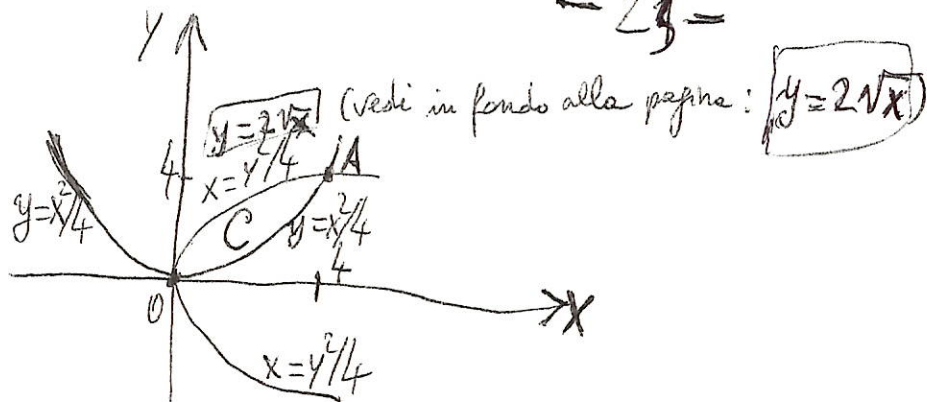 - 23 -
Y
y=2√x (vedi in fondo alla pagina: y=2√x)
4 x=y²/4 A
y=x²/4 C y=x²/4
4
O X
x=y²/4